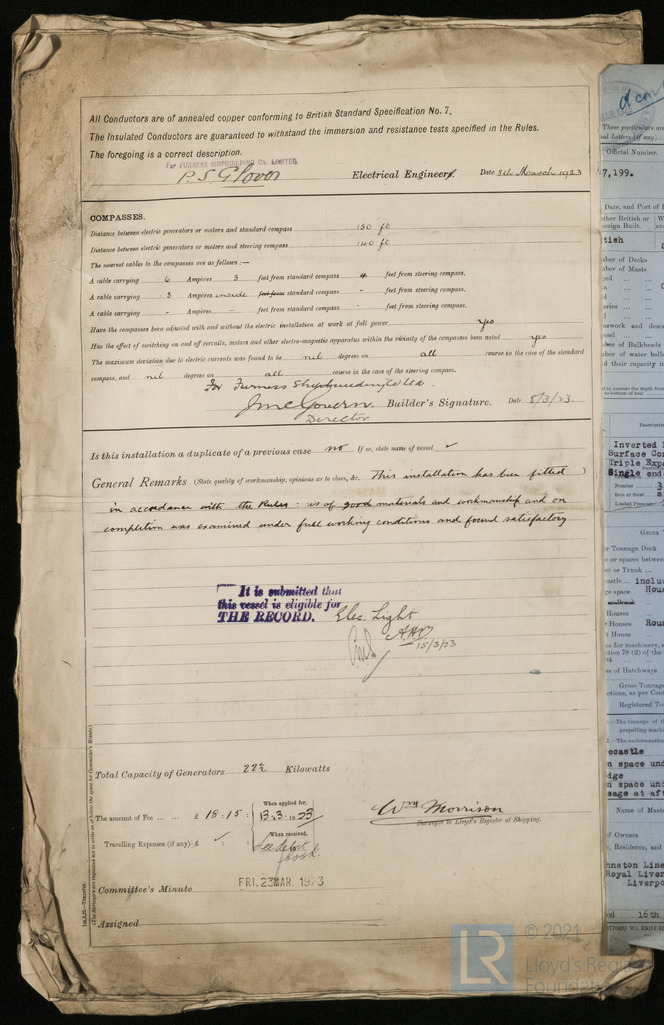 All Conductors are of annealed copper conforming to British Standard Specification No. 7.
The Insulated Conductors are guaranteed to withstand the immersion and resistance tests specified in the Rules.
The foregoing is a correct description.
For FURNESS SHIPBUILDING Co. LIMITED
P. S. Glover Electrical Engineers. Date 8th March 1923
COMPASSES.
Distance between electric generators or motors and standard compass 150 ft
Distance between electric generators or motors and steering compass 140 ft
The nearest cables to the compasses are as follows:—
A cable carrying 6 Ampères 3 feet from standard compass 4 feet from steering compass.
A cable carrying 3 Ampères inside feet from standard compass - feet from steering compass.
A cable carrying - Ampères - feet from standard compass - feet from steering compass.
Have the compasses been adjusted with and without the electric installation at work at full power yes
Has the effect of switching on and off circuits, motors and other electro-magnetic apparatus within the vicinity of the compasses been noted yes
The maximum deviation due to electric currents was found to be nil degrees on all course in the case of the standard
compass, and nil degrees on all course in the case of the steering compass.
For Furness Shipbuilding Co Ltd.
J McGovern. Builder's Signature. Date 8/3/23.
Director
Is this installation a duplicate of a previous case no If so, state name of vessel ✓
General Remarks (State quality of workmanship, opinions as to class, &c. This installation has been fitted )
in accordance with the Rules: is of good materials and workmanship and on
completion was examined under full working conditions and found satisfactory
It is submitted that
this vessel is eligible for
THE RECORD. Elec. Light
15/3/23
Total Capacity of Generators 22½ Kilowatts
The amount of Fee ... ... £ 18 : 15 : When applied for, 13.3.1923
Travelling Expenses (if any) £ ✓ : When received,
See debit
book.
Wm Morrison
Surveyor to Lloyd's Register of Shipping.
Committee's Minute FRI. 23 MAR. 1923
Assigned
Im.3.21.—Transfer.
(The Surveyors are requested not to write on or below the space for Committee's Minute.)
These particulars are
Official Number.
7,199.
Date, and Port of
British or
eign Built.
tish
ber of Decks
ber of Masts
ber of Bulkheads
ber of water
d their capacity
Inverted
Surface Con
Triple Exp
Single end
Number 3
Iron or Steel
Loaded Pressure
Gross
Tonnage Deck
or spaces between
et or Trunk ...
inclu
ge space Hou
Houses
Houses Roun
House
for machinery,
ction 78 (2) of the
of Hatchways
Gross Tonnage
ctions, as per
Registered
The tonnage of
propelling
ecastle
n space und
dge
n space und
eage at aft
Name of Master
of Owners
Residence, and
hnston Line
Royal Liver
Liverpo
ed 16th
LR © 2021
Lloyd's Register
Foundation